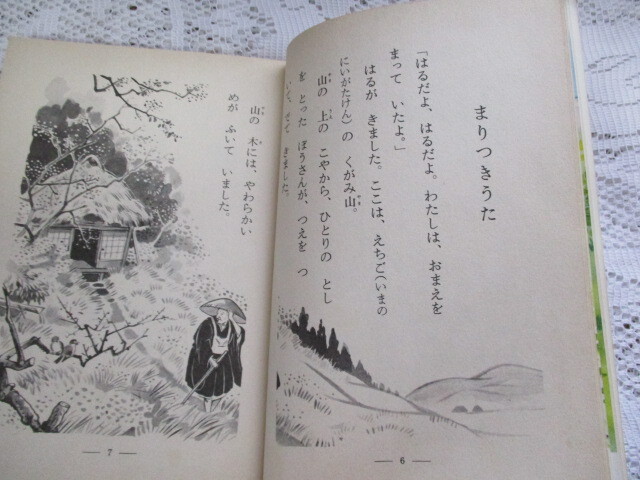 まりつきうた
「はるだよ、はるだよ。わたしは、おまえを
まって いたよ。」
はるが きました。ここは、えちご(いまの
にいがたけん)の くがみ山。
山の 上の こやから、ひとりの とし
を とった ぼうさんが、つえを つ
いて、でて きました。
6
山の 木には、やわらかい
めが ふいて いました。
7